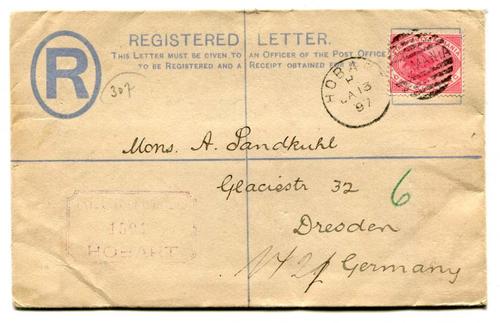 REGISTERED LETTER.
THIS LETTER MUST BE GIVEN TO AN OFFICER OF THE POST OFFICE
TO BE REGISTERED AND A RECEIPT OBTAINED FOR
R
307
HOBART
JA 13
97
TASMANIA
Mons. A. Sandkuhl
Glacisstr 32
6
Dresden
Germany
HOBART